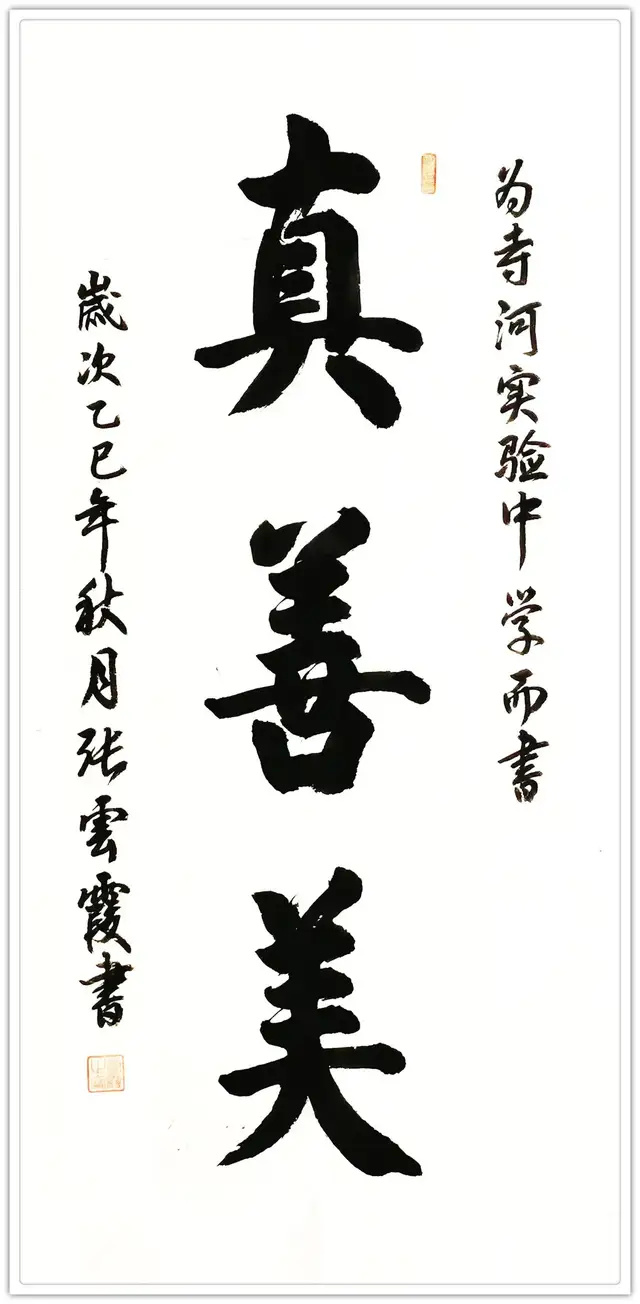 为寺河实验中学而书
真善美
歲次乙巳年秋月张雲霞書